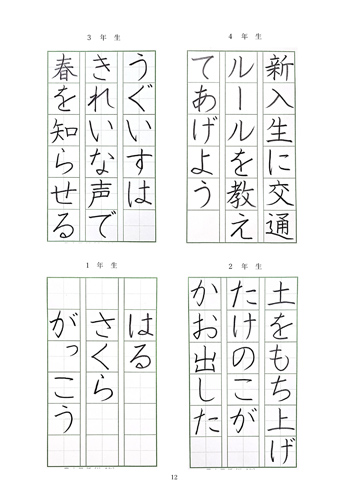 3年生
うぐいすは
きれいな声で
春を知らせる
4年生
新入生に交通
ルールを教え
てあげよう
1年生
はる
さくら
がっこう
2年生
土をもち上げ
たけのこが
かお出した
12